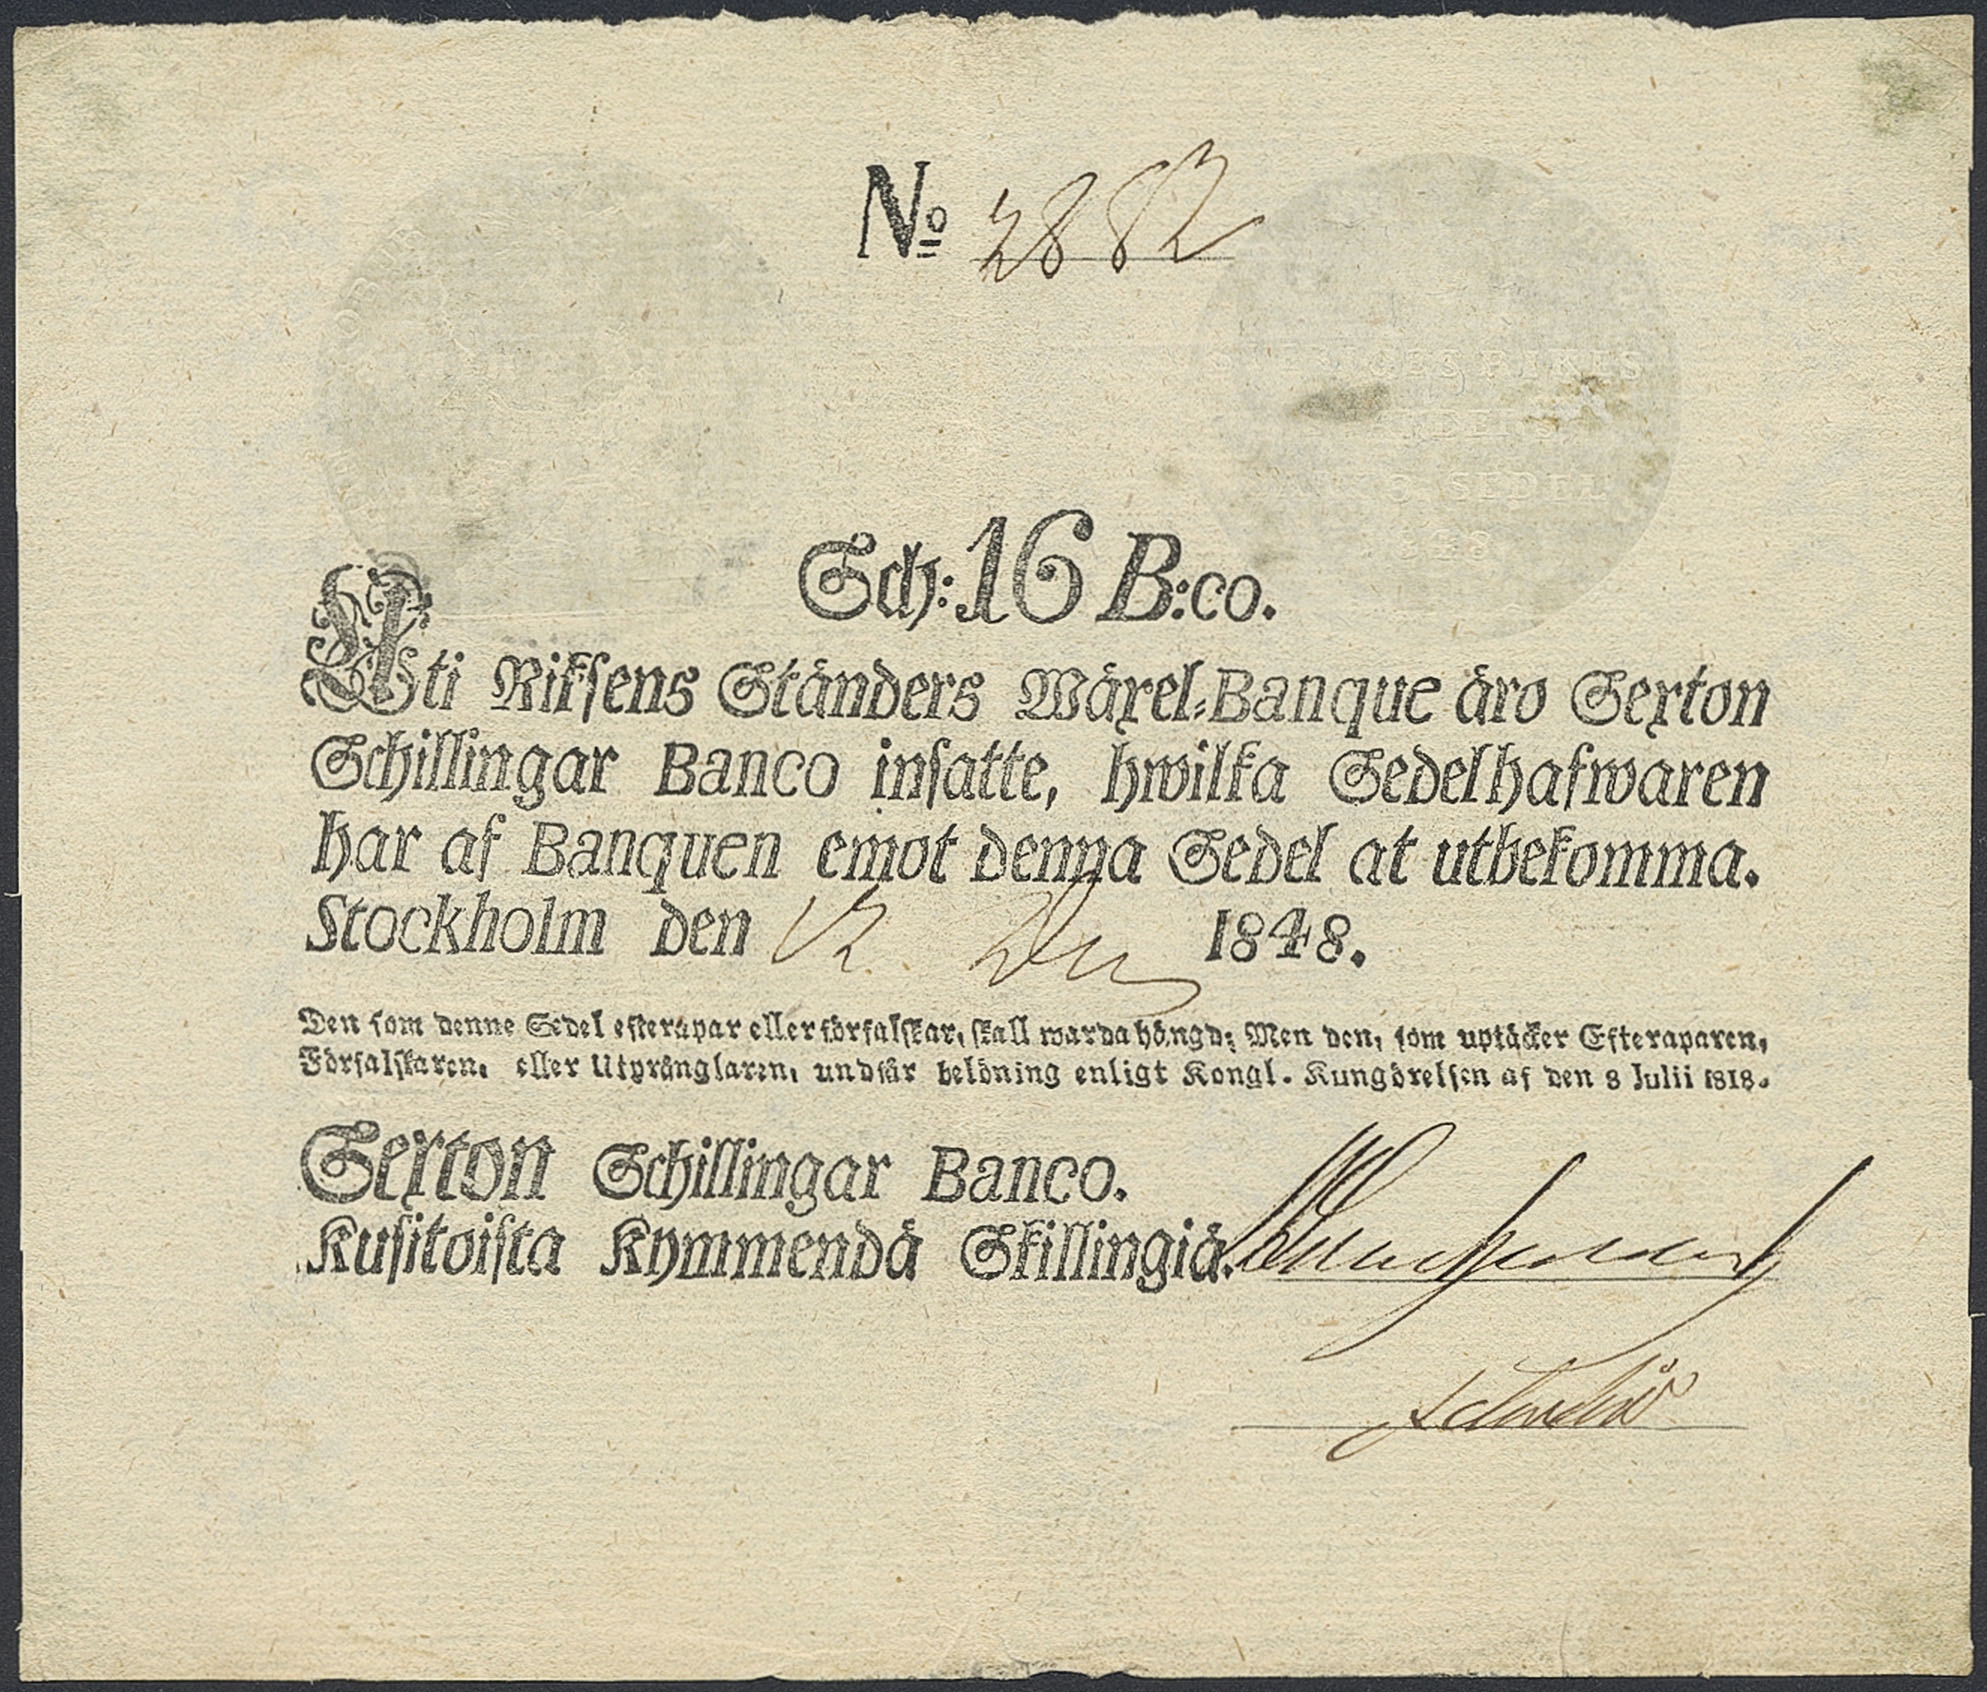 No 2882
Sch: 16 B:co.
Uti Riksens Ständers Wäxel-Banque äro Sexton
Schillingar Banco insatte, hwilka Sedelhafwaren
har af Banquen emot denna Sedel at utbekomma.
Stockholm den 12. Dec 1848.
Den som denne Sedel efterapar eller förfalskar, skall warda hängd; Men den, som uptäcker Efteraparen,
Förfalskaren, eller Utprånglaren, undfår belöning enligt Kongl. Kungörelsen af den 8 Julii 1818.
Sexton Schillingar Banco.
Kusitoista Kymmendä Skillingiä.
SEDEL